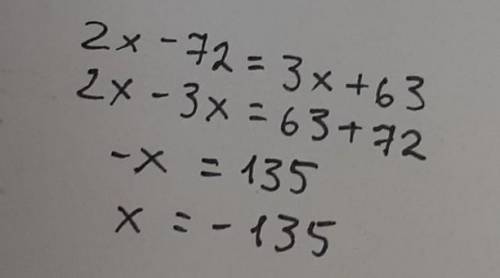 2x - 72 = 3x + 63
2x - 3x = 63 + 72
-x = 135
x = - 135